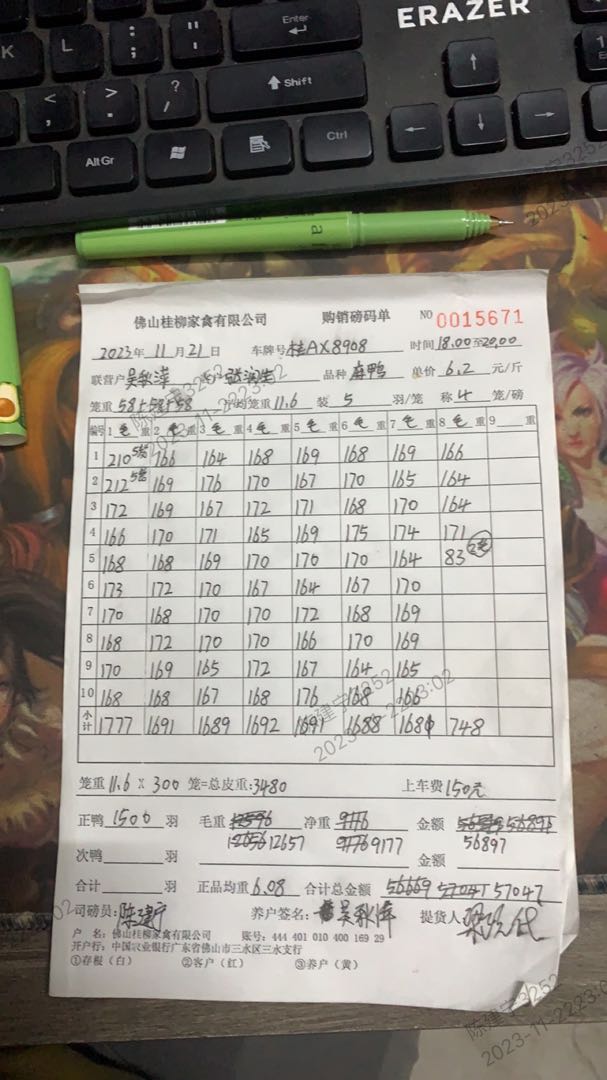 ERAZER
Enter
K L : ; " '
< , > . ? / Shift
Alt Gr Ctrl
佛山桂柳家禽有限公司 购销磅码单 NO 0015671
2023年 11月 21日 车牌号 桂AX8908 时间 18.00至20.00
联营户 吴秋洋 品种 麻鸭 单价 6.2 元/斤
笼重 58+58+58 平均笼重 11.6 装 5 羽/笼 称 4 笼/磅
编号 1 毛 重 2 毛 重 3 毛 重 4 毛 重 5 毛 重 6 毛 重 7 毛 重 8 毛 重 9 重
1 210 5笼 166 164 168 169 168 169 166
2 212 5笼 169 176 170 167 170 165 164
3 172 169 167 172 171 168 170 164
4 166 170 171 165 169 175 174 171
5 168 168 169 170 170 170 164 83 2笼
6 173 172 170 167 164 167 170
7 170 168 170 170 172 168 169
8 168 172 170 170 166 170 169
9 170 169 165 172 167 164 165
10 168 168 167 168 176 168 166
小计 1777 1691 1689 1692 1691 1688 1681 748
笼重 11.6 X 300 笼=总皮重: 3480 上车费 150元
正鸭 1500 羽 毛重 净重 金额
12657 9177 56897
次鸭 羽 金额
合计 羽 正品均重 6.08 合计总金额 56669 57047
司磅员: 陈建宁 养户签名: 吴秋洋 提货人
户 名: 佛山桂柳家禽有限公司 账号: 444 401 010 400 169 29
开户行: 中国农业银行广东省佛山市三水区三水支行
①存根（白） ②客户（红） ③养户（黄）
陈建宁3252
2023-11-22 23:02